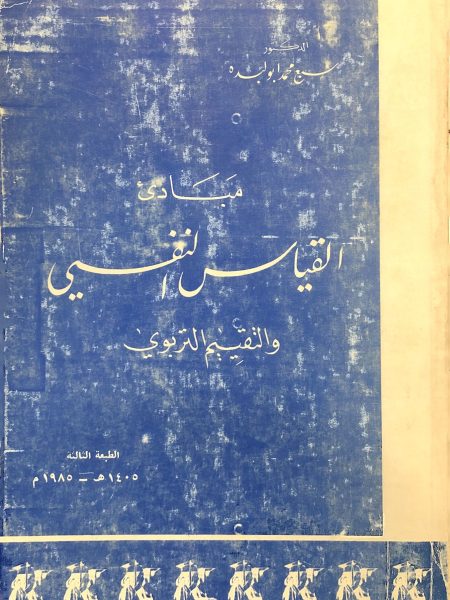 الدكتور
سبع محمد ابو لبده
مبادئ
القياس النفسي
والتقييم التربوي
الطبعة الثالثة
١٤٠٥ هـ - ١٩٨٥ م